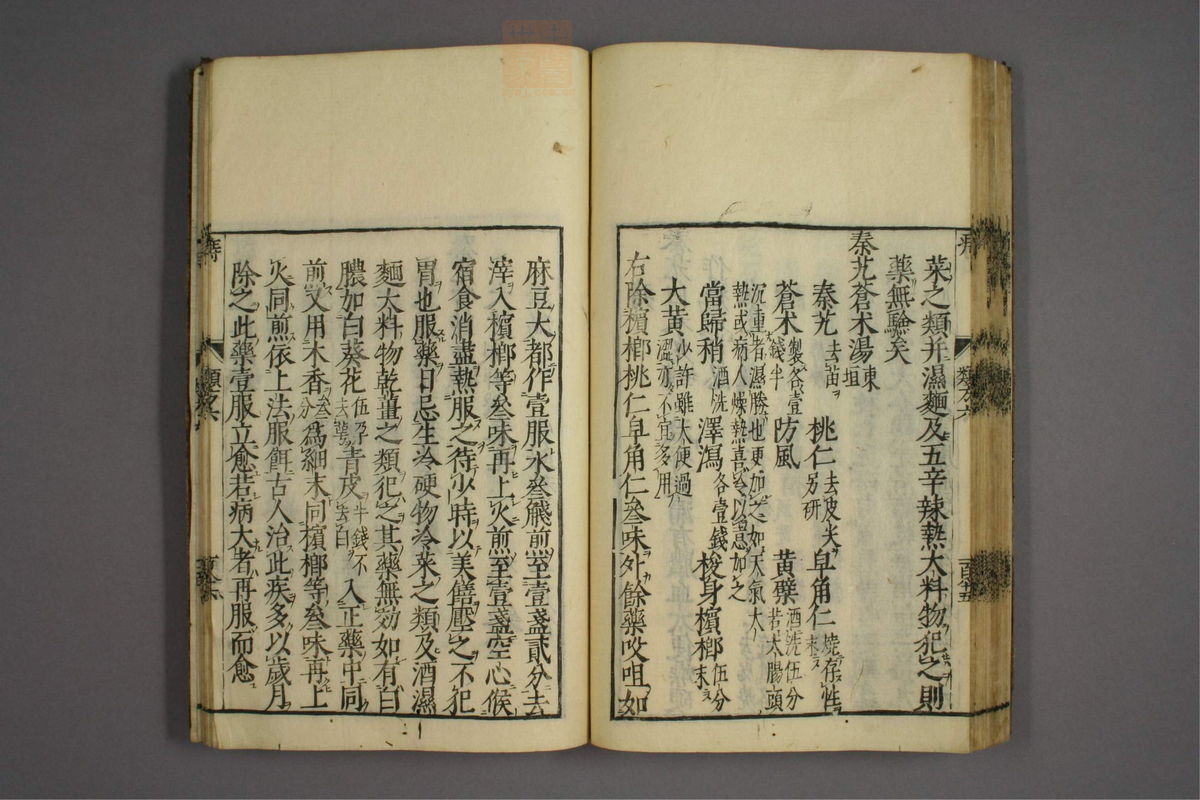 菜之類并濕麵及五辛辣熱大料物犯之則
藥無驗矣
秦艽蒼术湯東垣
秦艽去苗 桃仁去皮尖另研 皁角仁燒存性末
蒼术製各壹錢半 防風 黃檗酒洗伍分若大腸頭
沉重者濕勝也更加之如天氣大熱或病人燥熱喜冷以意加之
當歸稍酒洗 澤瀉各壹錢 梭身檳榔伍分末
大黃少許雖大便過澀亦不宜多用
右除檳榔桃仁皁角仁叄味外餘藥㕮咀如
麻豆大都作壹服水叄觥煎至壹盞貳分去
滓入檳榔等叄味再上火煎至壹盞空心候
宿食消盡熱服之待少時以美饍壓之不犯
胃也服藥日忌生冷硬物冷菜之類及酒濕
麵大料物乾薑之類犯之其藥無効如有白
膿加白葵花伍朶去萼青皮半錢不去白入正藥中同
煎又用木香叄分爲細末同檳榔等叄味再上
火同煎依上法服餌古人治此疾多以歲月
除之此藥壹服立愈若病大者再服而愈